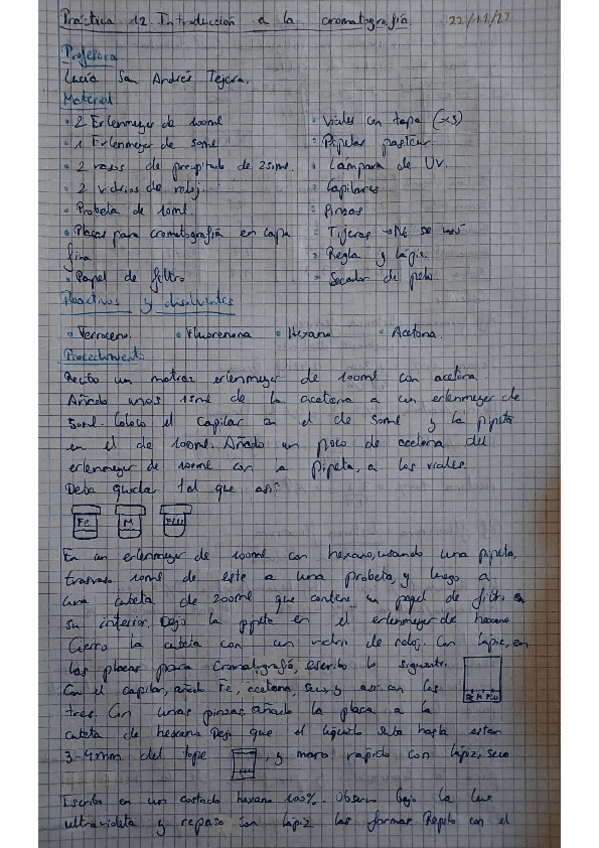 Práctica 12. Introducción a la cromatografía 22/11/21
Profesora
Lucía San Andrés Tejera.
Material
• 2 Erlenmeyer de 100ml
• 1 Erlenmeyer de 50ml
• 2 vasos de precipitado de 250ml.
• 2 vidrios de reloj.
• Probeta de 10ml.
• Placas para cromatografía en capa
fina
• Papel de filtro
• Viales con tapa (x3)
• Pipetas pasteur.
• Lámpara de UV.
• Capilares
• Pinzas
• Tijeras → No se usó
• Regla y lápiz
• Secador de pelo.
Reactivos y disolventes
• Ferroceno. • Fluorenona • Hexano • Acetona.
Procedimiento
Recibo un matraz erlenmeyer de 100ml con acetona
Añado unos 15ml de la acetona a un erlenmeyer de
50ml. Coloco el capilar en el de 50ml y la pipeta
en el de 100ml. Añado un poco de acetona del
erlenmeyer de 100ml con la pipeta, a los viales.
Debe quedar tal que así:
Fe M FLU
En un erlenmeyer de 100ml con hexano, usando una pipeta,
trasvaso 10ml de este a una probeta, y luego a
una cubeta de 200ml que contiene un papel de filtro en
su interior. Dejo la pipeta en el erlenmeyer de hexano
Cierro la cubeta con un vidrio de reloj. Con lápiz, en
las placas para cromatografía, escribo lo siguiente:
Fe M FLU
Con el capilar, añado Fe, acetona, seco y así con los
tres. Con unas pinzas, añado la placa a la
cubeta de hexano. Dejo que el líquido suba hasta estar
3-4mm del tope, y marco rápido con lápiz, seco
Escribo en un costado hexano 100%. Observo bajo la luz
ultravioleta y repaso con lápiz las formas. Repito con el